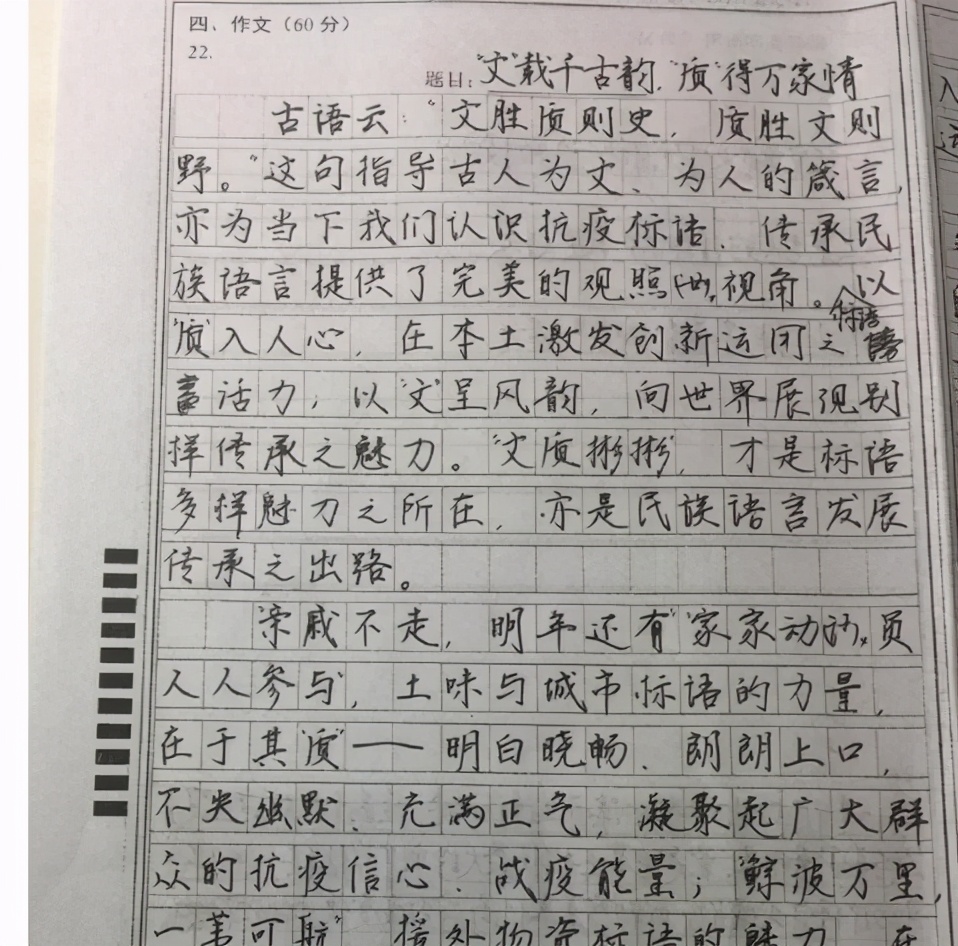 四、作文（60分）
22.
题目："文"载千古韵，"质"得万家情
古语云："文胜质则史，质胜文则
野。"这句指导古人为文、为人的箴言，
亦为当下我们认识抗疫标语、传承民
族语言提供了完美的观照视角。以
标语
"质"入人心，在本土激发创新运用之
活力；以"文"呈风韵，向世界展现别
样传承之魅力。"文质彬彬"，才是标语
多样魅力之所在，亦是民族语言发展
传承之出路。
"亲戚不走，明年还有""家家动员，
人人参与"，土味与城市标语的力量，
在于其"质"——明白晓畅、朗朗上口，
不失幽默、充满正气，凝聚起广大群
众的抗疫信心、战疫能量；"鲸波万里，
一苇可航"，援外物资标语的魅力，在
入